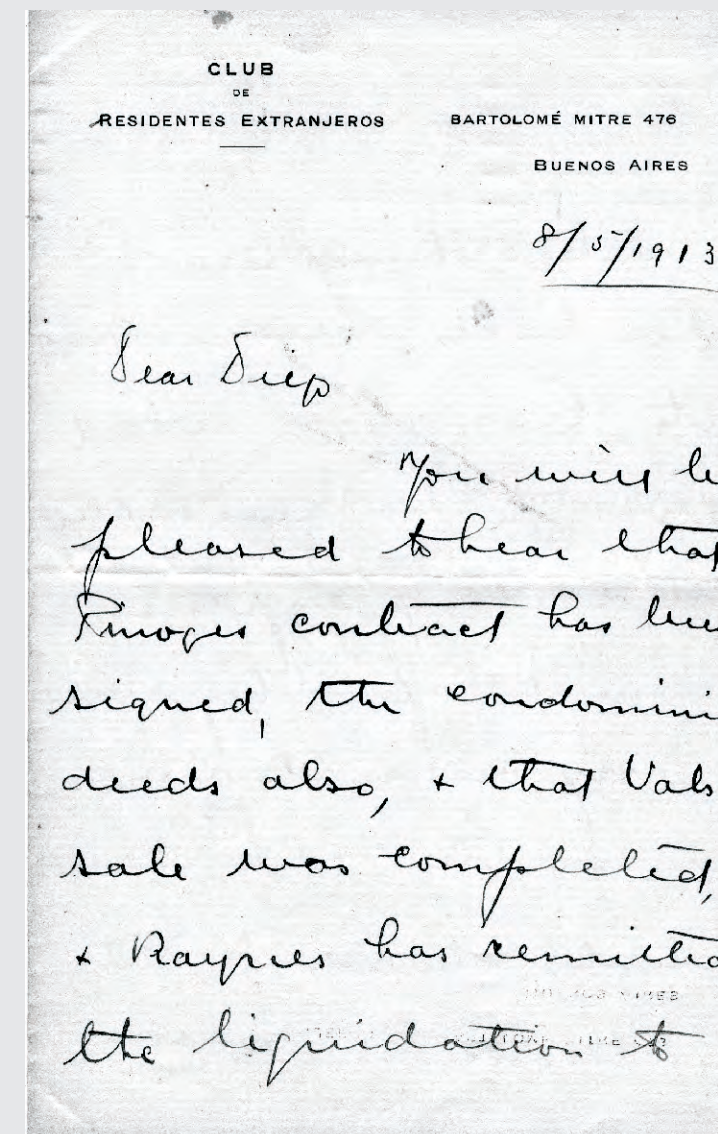 CLUB
DE
RESIDENTES EXTRANJEROS
BARTOLOMÉ MITRE 476
BUENOS AIRES
8/5/1913
Dear
You will be
pleased to hear that
contract has been
signed, the condomini
deeds also, + that Vals
sale was completed,
+ has remitted
the liquidation to